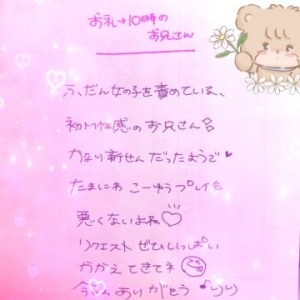 お礼→10時の
お兄さん
ふだん女の子を責めている、
初トリ性感のお兄さん
かなり新せんだったようで♥
たまにわこーゆうプレイも
悪くないよね♡
リクエストぜひいっぱい
かかえてきてネ
今日ありがとう♪りり